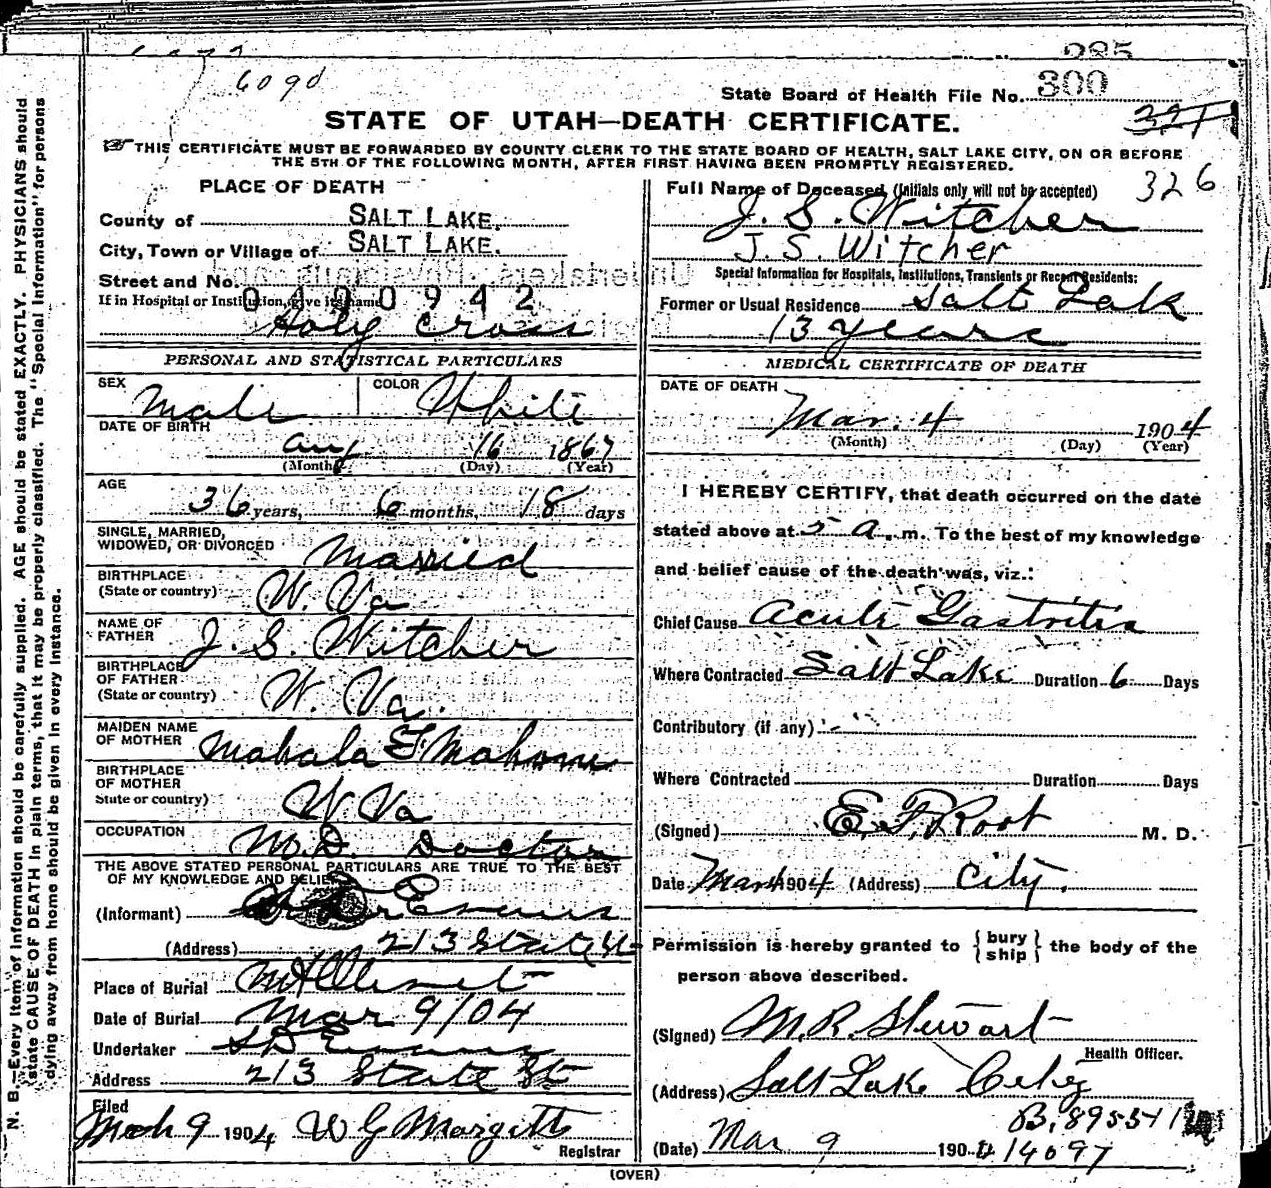 285
6090
State Board of Health File No. 300
STATE OF UTAH—DEATH CERTIFICATE.
321
THIS CERTIFICATE MUST BE FORWARDED BY COUNTY CLERK TO THE STATE BOARD OF HEALTH, SALT LAKE CITY, ON OR BEFORE
THE 5TH OF THE FOLLOWING MONTH, AFTER FIRST HAVING BEEN PROMPTLY REGISTERED.
326
PLACE OF DEATH
County of SALT LAKE.
City, Town or Village of SALT LAKE.
Street and No.
If in Hospital or Institution, give its name
0400942
Holy Cross
Full Name of Deceased (Initials only will not be accepted)
J. S. Witcher
J. S. Witcher
Special Information for Hospitals, Institutions, Transients or Recent Residents:
Former or Usual Residence Salt Lak
13 years
PERSONAL AND STATISTICAL PARTICULARS
SEX Male COLOR White
DATE OF BIRTH
Aug 16 1867
(Month) (Day) (Year)
AGE
36 years, 6 months, 18 days
SINGLE, MARRIED,
WIDOWED, OR DIVORCED Married
BIRTHPLACE
(State or country) W. Va
NAME OF
FATHER J. S. Witcher
BIRTHPLACE
OF FATHER
(State or country) W. Va.
MAIDEN NAME
OF MOTHER Mahala F. Mahone
BIRTHPLACE
OF MOTHER
State or country) W Va
OCCUPATION M.D. Doctor
THE ABOVE STATED PERSONAL PARTICULARS ARE TRUE TO THE BEST
OF MY KNOWLEDGE AND BELIEF
(Informant) Evans
(Address) 213 State St
Place of Burial Mt Olivet
Date of Burial Mar 9/04
Undertaker S D Evans
Address 213 State St
Filed
Mch 9 1904 W G Margetts
Registrar
MEDICAL CERTIFICATE OF DEATH
DATE OF DEATH
Mar. 4 1904
(Month) (Day) (Year)
I HEREBY CERTIFY, that death occurred on the date
stated above at 5 a. m. To the best of my knowledge
and belief cause of the death was, viz.:
Chief Cause Acute Gastritis
Where Contracted Salt Lake Duration 6 Days
Contributory (if any)
Where Contracted Duration Days
(Signed) E. F. Root M. D.
Date March 1904 (Address) City.
Permission is hereby granted to {bury
ship} the body of the
person above described.
(Signed) M. R. Stewart
Health Officer.
(Address) Salt Lake City
B. 89554
(Date) Mar 9 1904 14097
(OVER)
N. B.—Every item of information should be carefully supplied. AGE should be stated EXACTLY. PHYSICIANS should
state CAUSE OF DEATH in plain terms, that it may be properly classified. The "Special Information" for persons
dying away from home should be given in every instance.